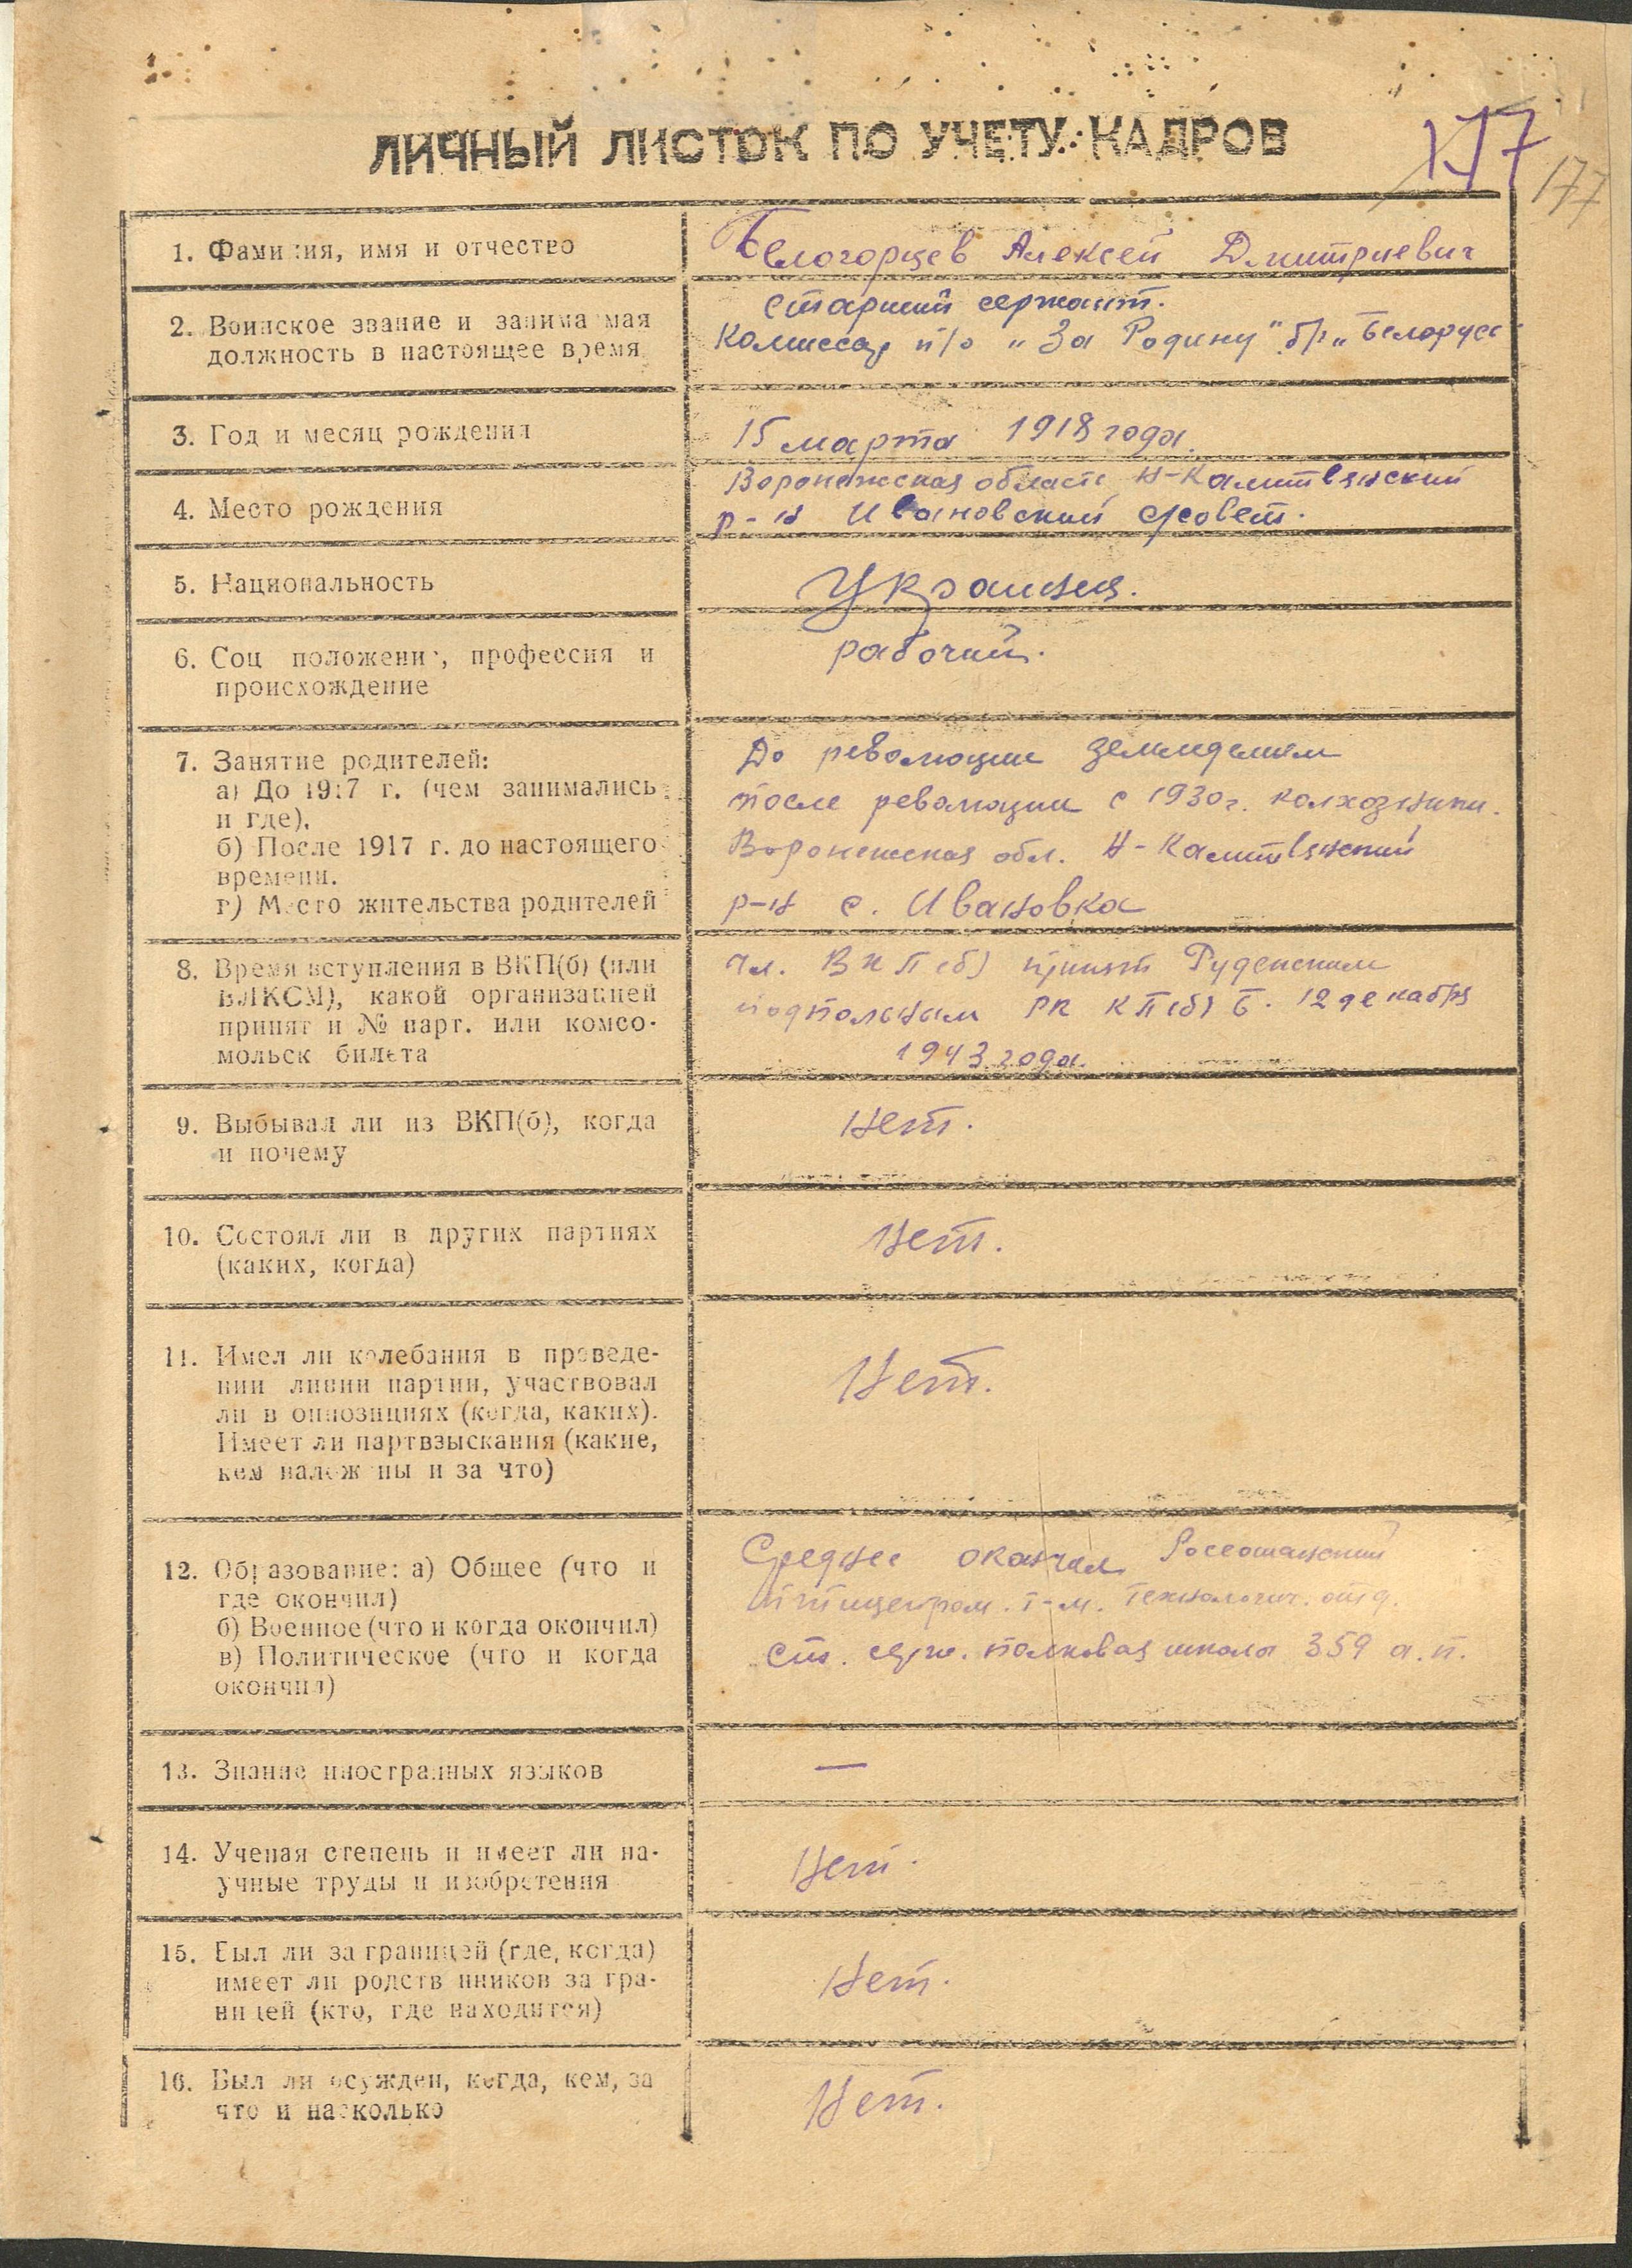 ЛИЧНЫЙ ЛИСТОК ПО УЧЕТУ КАДРОВ
177
177
1. Фамилия, имя и отчество
Белогорцев Алексей Дмитриевич
2. Воинское звание и занимаемая
должность в настоящее время
старший сержант.
Комиссар п/о „За Родину" бр. „Беларусс
3. Год и месяц рождения
15 марта 1918 года.
4. Место рождения
Воронежская область, Н-Калитвянский
р-н Ивановский с/совет.
5. Национальность
Украинец.
6. Соц положение, профессия и
происхождение
рабочий.
7. Занятие родителей:
а) До 1917 г. (чем занимались
и где).
б) После 1917 г. до настоящего
времени.
г) Место жительства родителей
До революции земледелием
после революции с 1930 г. колхозники.
Воронежская обл. Н-Калитвянский
р-н с. Ивановка
8. Время вступления в ВКП(б) (или
ВЛКСМ), какой организацией
принят и № парт. или комсо-
мольск билета
Чл. ВКП(б) принят Руденским
подпольным РК КП(б)Б. 12 декабря
1943 года.
9. Выбывал ли из ВКП(б), когда
и почему
Нет.
10. Состоял ли в других партиях
(каких, когда)
Нет.
11. Имел ли колебания в проведе-
нии линии партии, участвовал
ли в оппозициях (когда, каких).
Имеет ли партвзыскания (какие,
кем наложены и за что)
Нет.
12. Образование: а) Общее (что и
где окончил)
б) Военное (что и когда окончил)
в) Политическое (что и когда
окончил)
Среднее окончил Россошанский
птицепром. т-м. технологич. отд.
Ст. серж. полковая школа 359 а.п.
13. Знание иностранных языков
—
14. Ученая степень и имеет ли на-
учные труды и изобретения
Нет.
15. Был ли за границей (где, когда)
имеет ли родственников за гра-
ницей (кто, где находится)
Нет.
16. Был ли осужден, когда, кем, за
что и насколько
Нет.